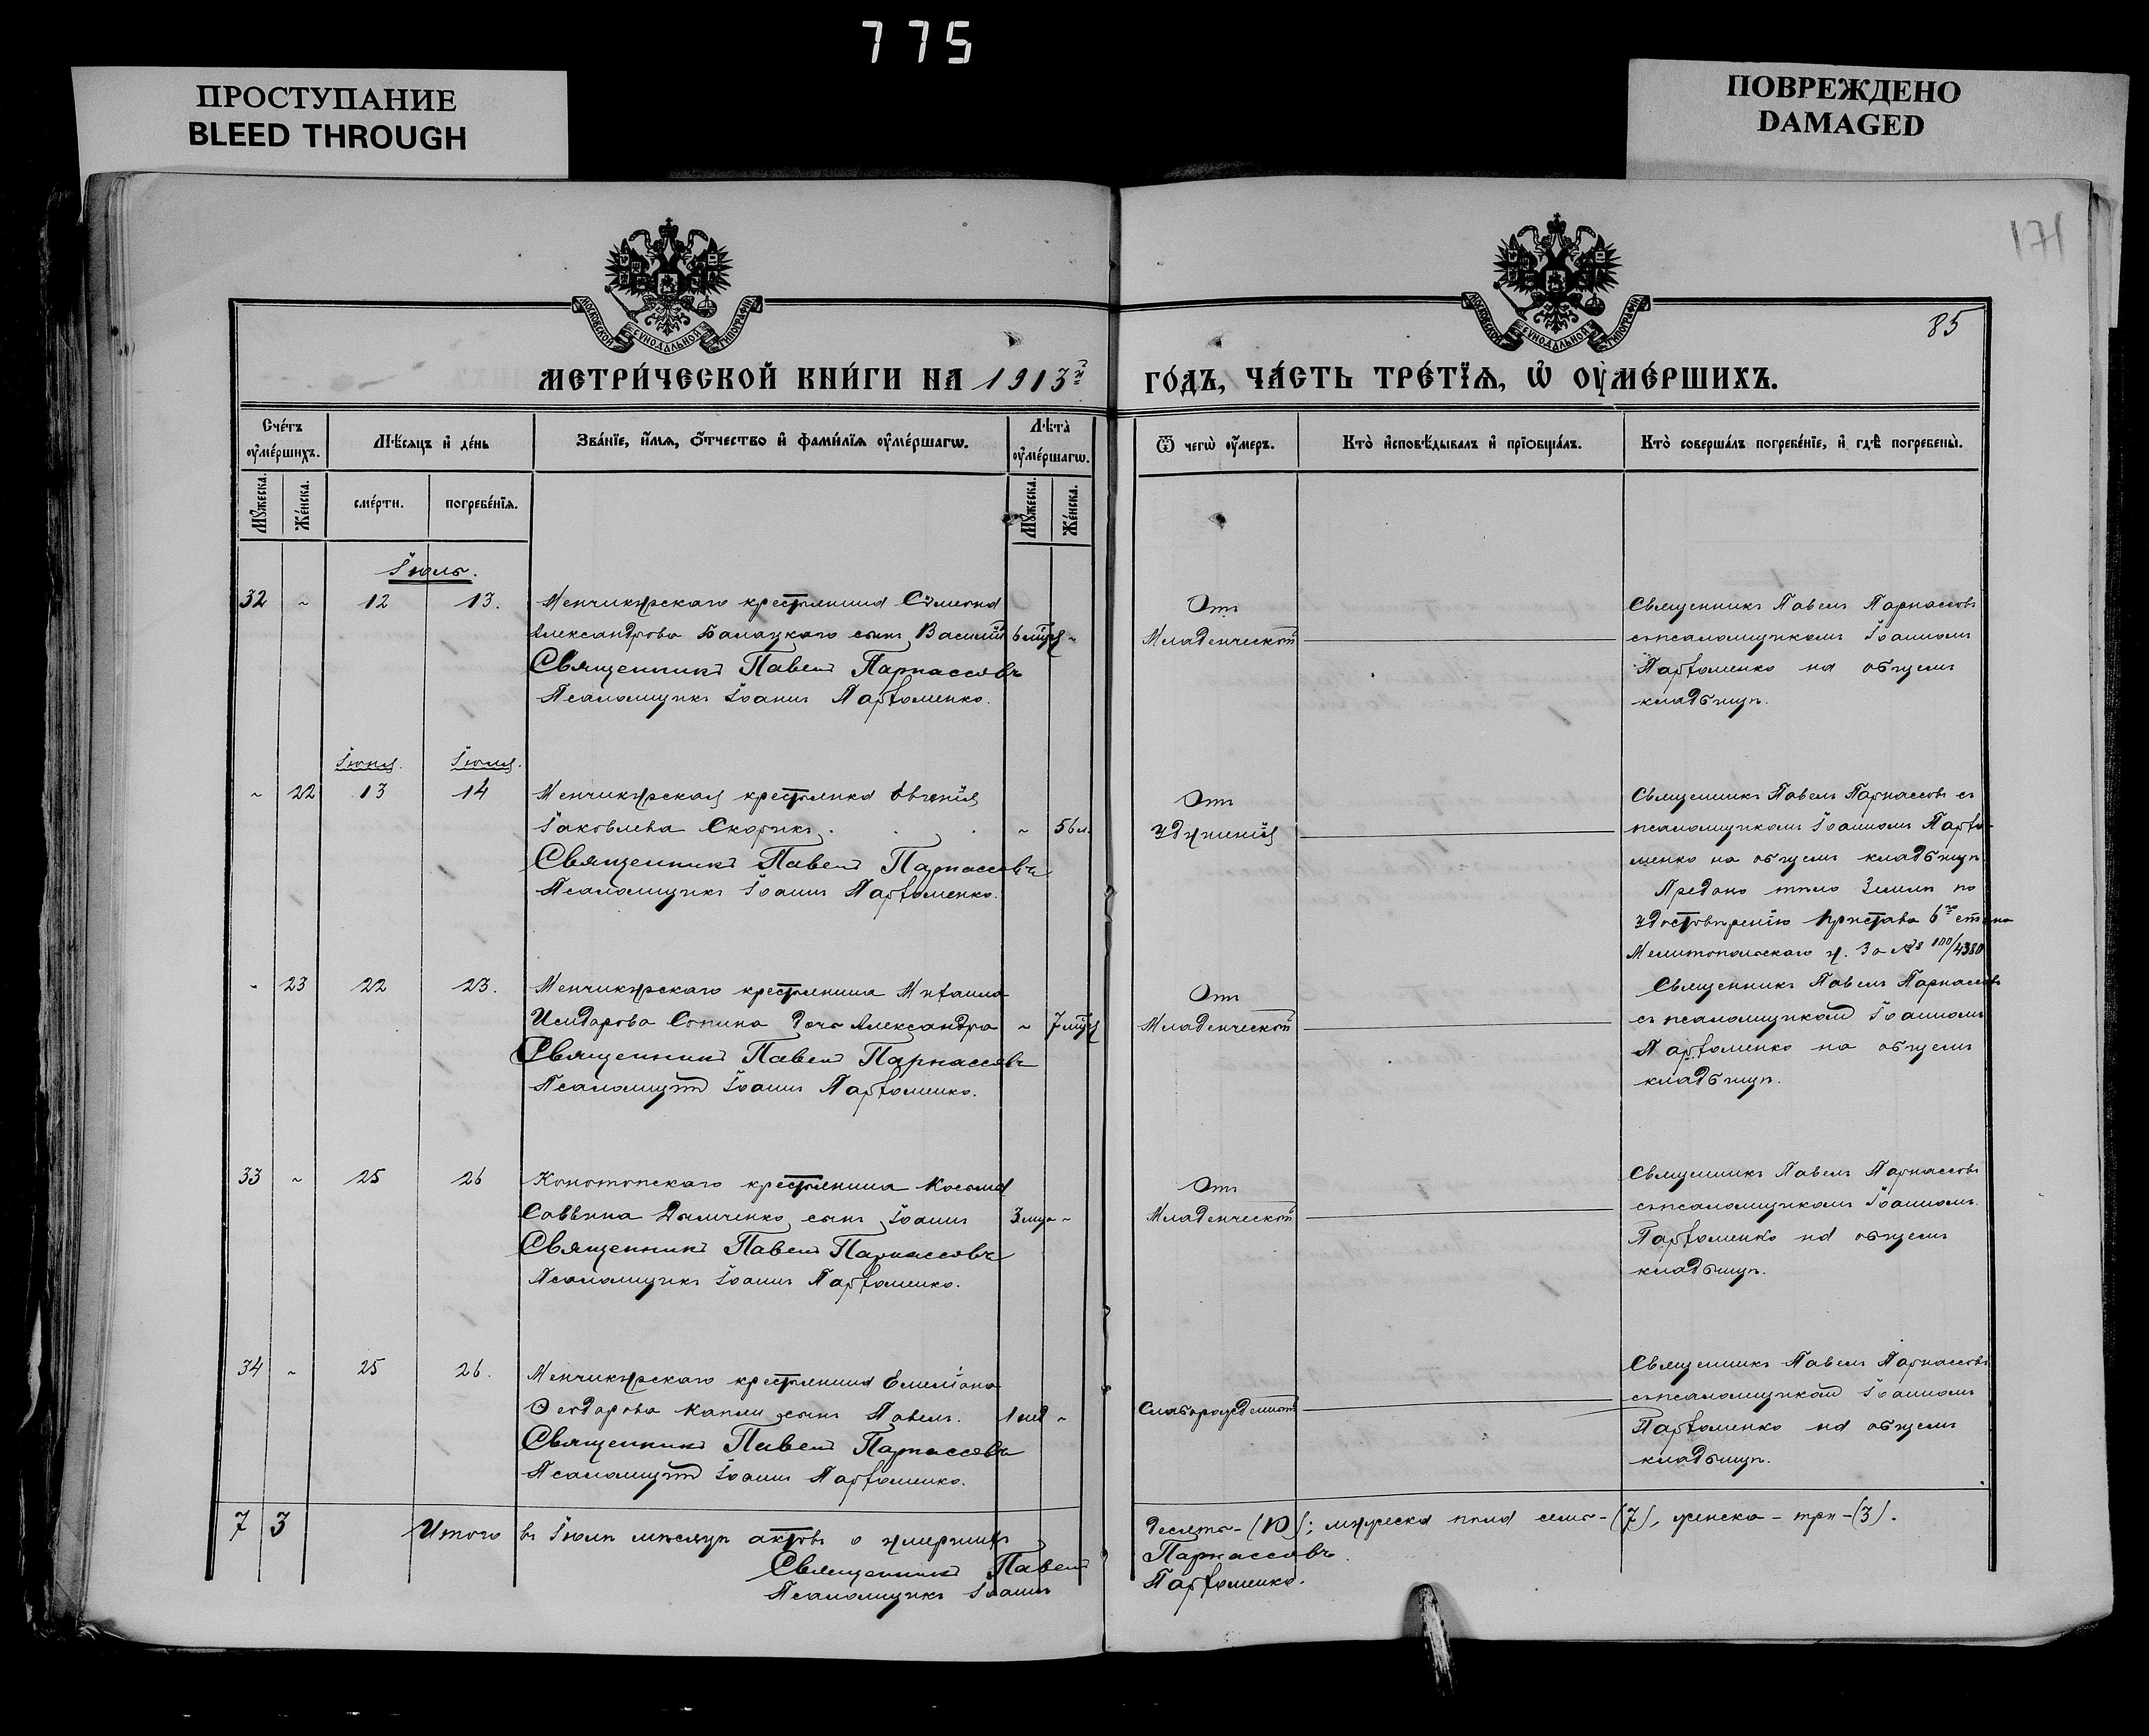 775
ПРОСТУПАНИЕ
BLEED THROUGH
ПОВРЕЖДЕНО
DAMAGED
171
МОСКОВСКОЙ СѴНОДАЛЬНОЙ ТИПОГРАФІИ
МОСКОВСКОЙ СѴНОДАЛЬНОЙ ТИПОГРАФІИ
85
МЕТРИ́ЧЕСКОЙ КНИ́ГИ НА 1913й
ГО́ДЪ, ЧА́СТЬ ТРЕ́ТІѦ, Ѡ ОУМЕ́РШИХЪ.
Сче́тъ оумéршихъ.
Мѣ́сяцъ и де́нь
Зва́нїе, и́мя, о́тчество и фами́лїя оумéршагѡ.
Лѣта̀ оумéршагѡ.
Ѿ чегѡ̀ оу́меръ.
Кто̀ и҆сповѣ́дывалъ и҆ прїѡбща́лъ.
Кто̀ соверша́лъ погребе́нїе, и҆ гдѣ̀ погребены̀.
Мꙋ́жеска.
Же́нска.
сме́рти.
погребе́нїя.
Мꙋ́жеска.
Же́нска.
Іюль.
32 ~ 12 13. Менчикурскаго крестьянина Симеона
Александрова Балацкаго сынъ Василій 6 мѣс ~
Священникъ Павелъ Парнассовъ
Псаломщикъ Іоаннъ Парѳоменко.
Отъ
Младенческой
Священникъ Павелъ Парнассовъ
съ псаломщикомъ Іоанномъ
Парѳоменко на общемъ
кладбищѣ.
Іюня. Іюля.
~ 22 13 14 Менчикурская крестьянка Евгенія
Іаковлева Скорикъ. ~ 56 л.
Священникъ Павелъ Парнассовъ
Псаломщикъ Іоаннъ Парѳоменко.
Отъ
удушенія
Священникъ Павелъ Парнассовъ съ
псаломщикомъ Іоанномъ Парѳо-
менко на общемъ кладбищѣ
Предано тѣло землѣ по
удостовѣренію Пристава 6го стана
Мелитопольскаго у. за № 100/4380
~ 23 22 23. Менчикурскаго крестьянина Михаила
Исидорова Сопина дочь Александра ~ 7 мѣс
Священникъ Павелъ Парнассовъ
Псаломщикъ Іоаннъ Парѳоменко.
Отъ
Младенческой
Священникъ Павелъ Парнассовъ
съ псаломщикомъ Іоанномъ
Парѳоменко на общемъ
кладбищѣ.
33 ~ 25 26 Конотопскаго крестьянина Космы
Саввина Дымченко, сынъ Іоаннъ 3 мца ~
Священникъ Павелъ Парнассовъ
Псаломщикъ Іоаннъ Парѳоменко.
Отъ
Младенческой
Священникъ Павелъ Парнассовъ
съ псаломщикомъ Іоанномъ
Парѳоменко на общемъ
кладбищѣ.
34 ~ 25 26. Менчикурскаго крестьянина Емеліана
Ѳеодорова Капли сынъ Павелъ. 1 нед ~
Священникъ Павелъ Парнассовъ
Псаломщикъ Іоаннъ Парѳоменко.
Слаборожденный
Священникъ Павелъ Парнассовъ
съ псаломщикомъ Іоанномъ
Парѳоменко на общемъ
кладбищѣ.
7 3 Итого въ Іюлѣ мѣсяцѣ актовъ о умершихъ
десять-(10); мужеска пола семь-(7), женска-три-(3).
Священникъ Павелъ Парнассовъ.
Псаломщикъ Іоаннъ Парѳоменко.